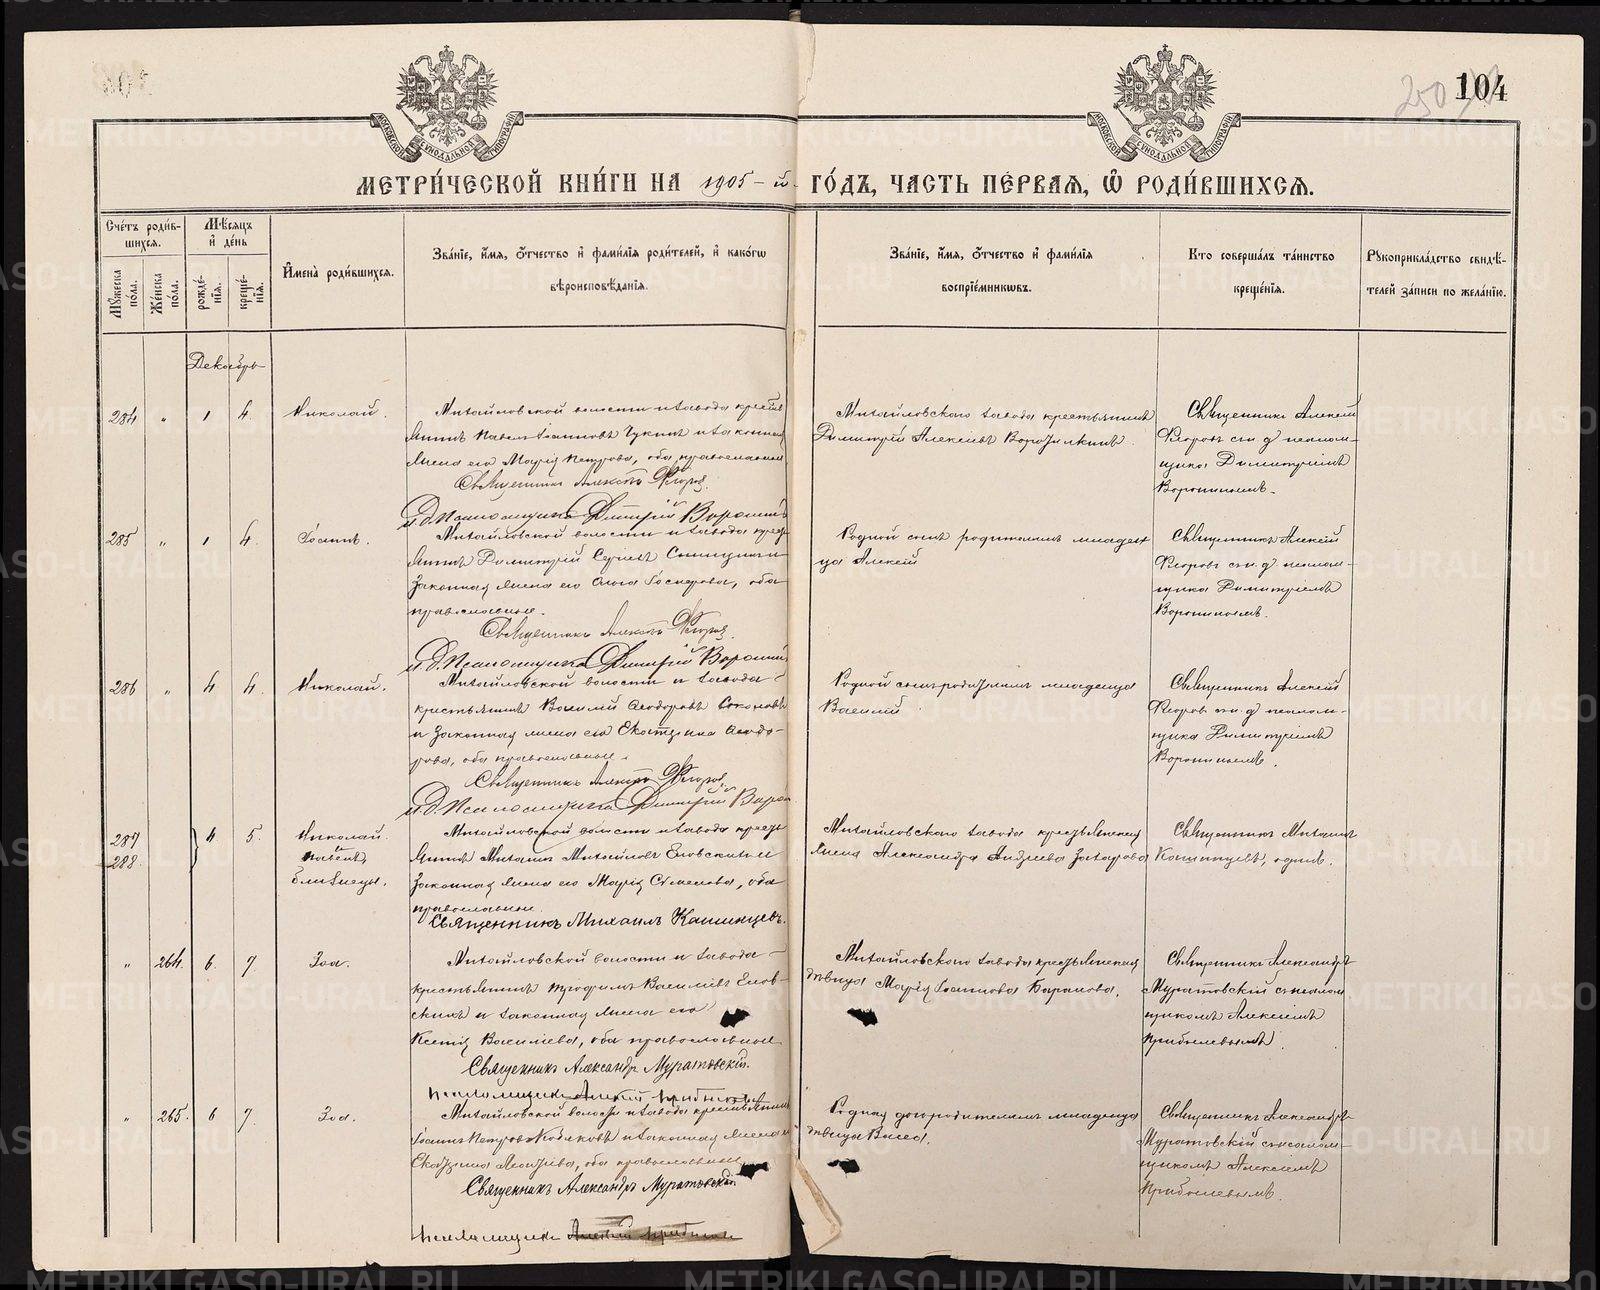 104
МЕТРИ́ЧЕСКОЙ КНИ́ГИ НА 1905-й ГО́ДЪ, ЧАСТЬ ПЕ́РВАЯ, Ѡ҆ РОДИ́ВШИХСЯ.
Сче́тъ роди́в-
шихся.
Мѣ́сяцъ
и҆ де́нь
Мꙋ́жеска по́ла.
Же́нска по́ла.
рожде́-
нїѧ.
креще́-
нїѧ.
И҆мена̀ роди́вшихсѧ.
Зва́нїе, и҆́мѧ, ѻ҆́тчество и҆ фами́лїѧ роди́телей, и҆ како́гѡ
вѣроисповѣ́данїѧ.
Зва́нїе, и҆́мѧ, ѻ҆́тчество и҆ фами́лїѧ
воспрїе́мникѡвъ.
Кто соверша́лъ та́инство
креще́нїѧ.
Рꙋкоприкла́дство свидѣ́-
телей за́писи по жела́нїю.
Декабрь
284 " 1 4. Николай.
Михайловской волости и завода кресть
янинъ Павелъ Іоанновъ Чукинъ и законная
жена его Марія Петрова, оба православные
Священникъ Алексій Флоровъ
и. д. Псаломщика Димитрій Воронин
Михайловскаго завода крестьянинъ
Димитрій Алексіевъ
Священникъ Алексій
Флоровъ съ и. д. псалом-
щика Димитріемъ
Воронинымъ.
285 " 1 4. Іоаннъ.
Михайловской волости и завода кресть
янинъ Димитрій Сергіевъ и
законная жена его Ольга оба
православные.
Священникъ Алексій Флоровъ
и. д. Псаломщика Димитрій Воронин
Родной сынъ родителямъ младен
ца Алексій
Священникъ Алексій
Флоровъ съ и. д. псалом-
щика Димитріемъ
Воронинымъ.
286 " 4 4. Николай.
Михайловской волости и завода
крестьянинъ Василій Ѳеодоровъ
и законная жена его Екатерина Ѳеодо-
рова, оба православные.
Священникъ Алексій Флоровъ
и. д. Псаломщика Димитрій Ворон
Родной сынъ родителямъ младенца
Василій
Священникъ Алексій
Флоровъ съ и. д. псалом-
щика Димитріемъ
Воронинымъ.
287
288. 4 5. Николай
и
близнецы.
Михайловской волости и завода кресть
янинъ Михаилъ Михайловъ Еловскихъ и
законная жена его Марія Семенова, оба
православные.
Священникъ Михаилъ Кашинцевъ.
Михайловскаго завода крестьянская
жена Александра Андреева Захарова
Священникъ Михаилъ
Кашинцевъ, одинъ.
" 264. 6. 7. Зоя.
Михайловской волости и завода
крестьянинъ Трофимъ Василіевъ Елов-
скихъ и законная жена его
Ксенія Василіева, оба православные
Священникъ Александръ Муратовскій.
псаломщикъ Алексій
Михайловскаго завода крестьянская
дѣвица Марія Іоаннова Баранова.
Священникъ Александръ
Муратовскій съ псалом
щикомъ Алексіемъ
Прибылевымъ.
" 265. 6 7. Зоя.
Михайловской волости и завода крестьянинъ
Іоаннъ Петровъ и законная жена
Екатерина оба православные
Священникъ Александръ Муратовскій
псаломщикъ Алексій
Родная дочь родителямъ младенца
дѣвица
Священникъ Александръ
Муратовскій съ псалом-
щикомъ Алексіемъ
Прибылевымъ.
METRIKI.GASO-URAL.RU